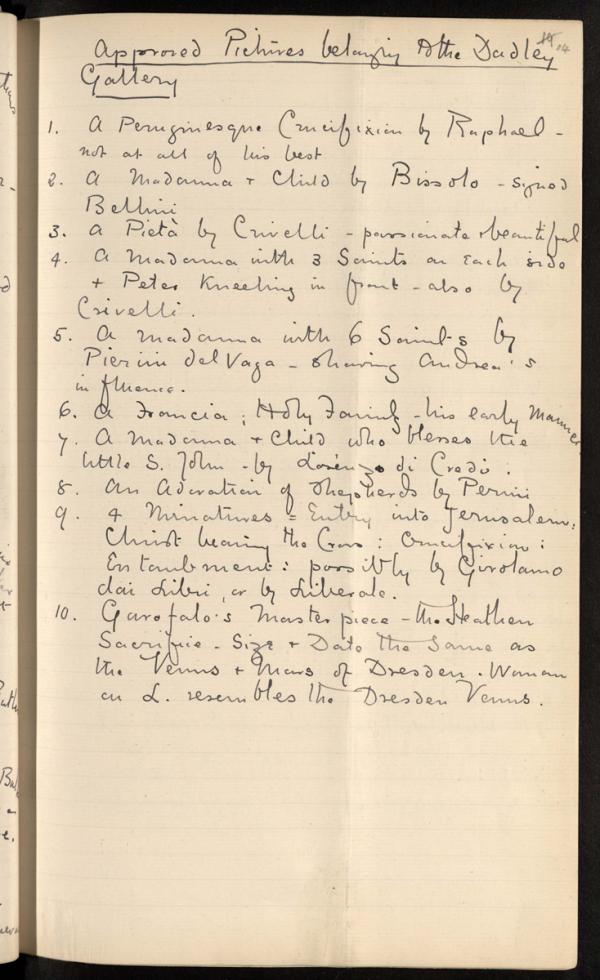 Approved Pictures belonging to the Dudley
14
Gallery
1. A Peruginesque Crucifixion by Raphael -
not at all of his best
2. A Madonna + Child by Bissolo - signed
Bellini
3. A Pietà by Crivelli - passionate + beautiful
4. A Madonna with 3 Saints on Each side
+ Peter Kneeling in front - also by
Crivelli.
5. A Madonna with 6 Saints by
Pierin del Vaga - sharing Andrea's
influence.
6. A Francia, Holy Family - his early manner
7. A Madonna + Child who blesses the
little S. John - by Lorenzo di Credi.
8. An Adoration of Shepherds by Penni
9. 4 Miniatures = Entry into Jerusalem:
Christ bearing the Cross: Crucifixion:
Entombment: possibly by Girolamo
dai Libri, or by Liberale.
10. Garofalo's Masterpiece - the Heathen
Sacrifice - Size + Date the Same as
the Venus + Mars of Dresden. Woman
on L. resembles the Dresden Venus.